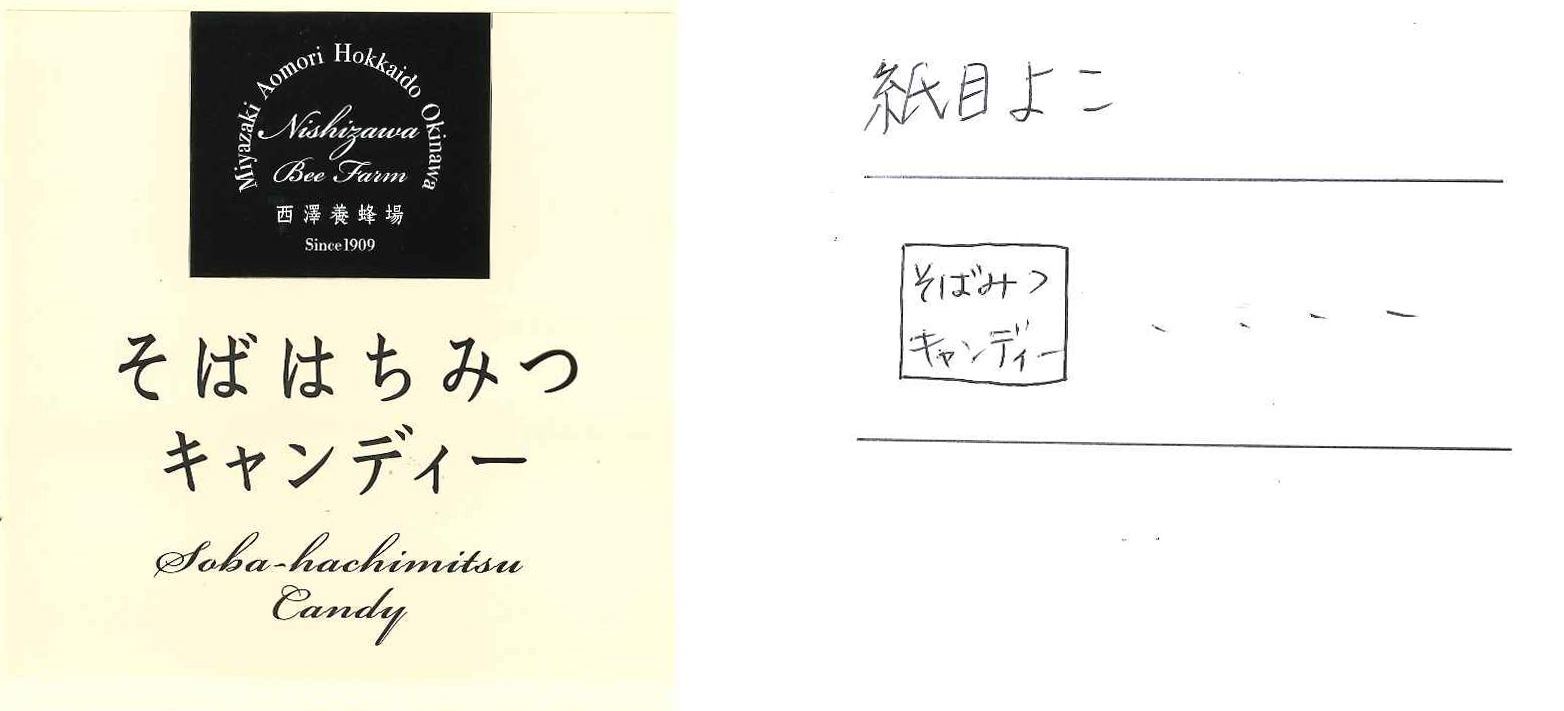 Miyazaki Aomori Hokkaido Okinawa
Nishizawa
Bee Farm
西澤養蜂場
Since1909
そばはちみつ
キャンディー
Soba-hachimitsu
Candy
紙目よこ
そばみつ
キャンディー